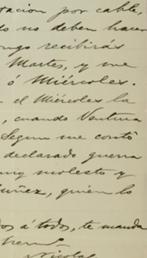 tacion por cable,
lo no deben hacer
ngo recibirás
Martes, y me
ó Miércoles.
el Miércoles la
, cuando Ventura
Segun me contó
declarado guerra
muy molesto y
uñez, quien lo
dos á todos, te manda
Nicolas